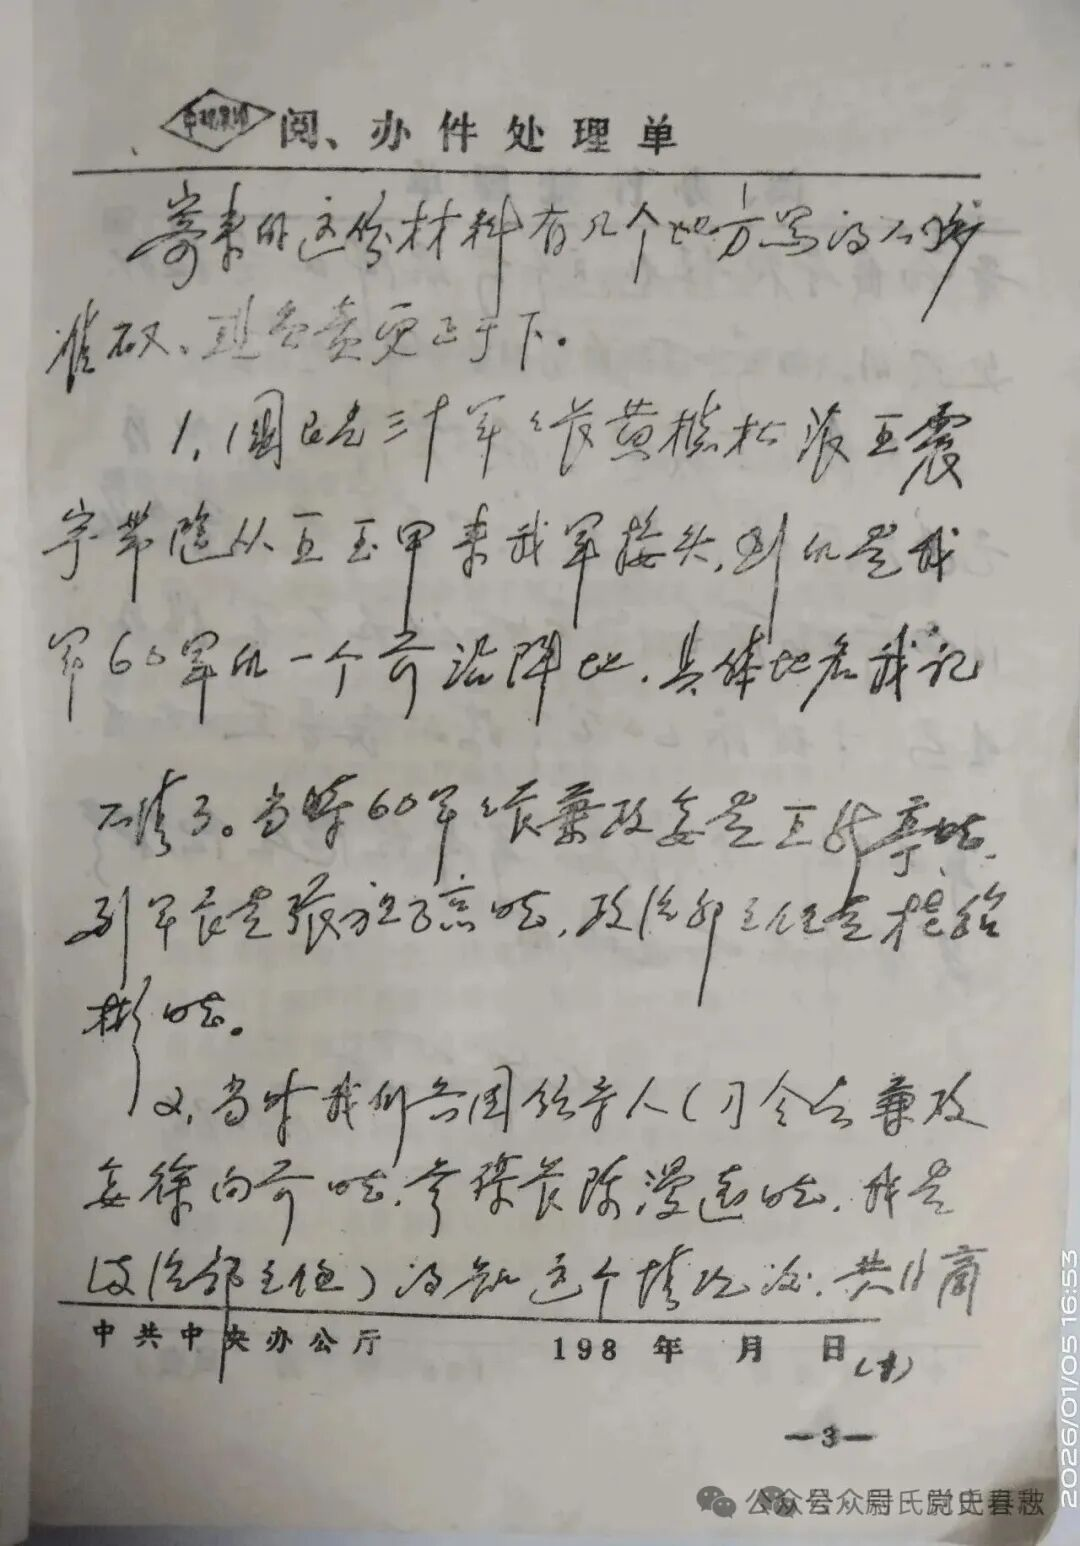 阅、办件处理单
寄来的这份材料有几个地方写得不够
准确、现负责更正于下。
1，国民党三十军军长黄樵松派王震
宇带随从王玉甲来我军接头，到的是我
军60军的一个前沿阵地，具体地名我记
不清了。当时60军军长兼政委是王新亭同志，
副军长是张祖谅同志，政治部主任是桂绍
彬同志。
2，当时我们兵团领导人（司令员兼政
委徐向前同志，参谋长陈漫远同志，我是
政治部主任）得知这个情况后，共同商
中共中央办公厅 198 年 月 日
—3—
公众号众尉氏党史春秋
2026/01/05 16:53